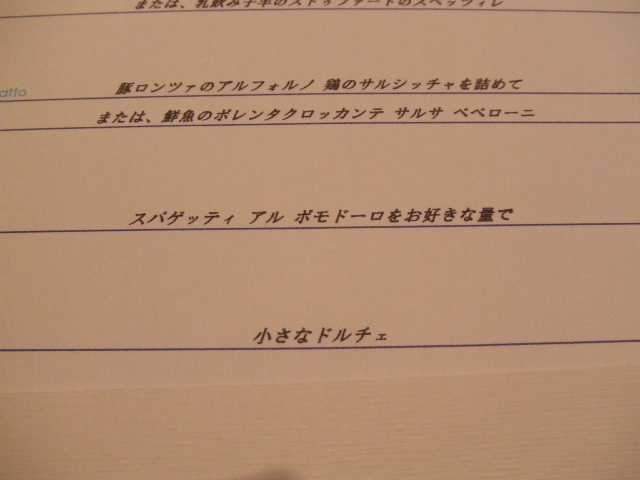 または、乳飲み子羊のストゥファートのスペッツィレ
atto
豚ロンツァのアルフォルノ 鶏のサルシッチャを詰めて
または、鮮魚のポレンタクロッカンテ サルサ ペペローニ
スパゲッティ アル ポモドーロをお好きな量で
小さなドルチェ